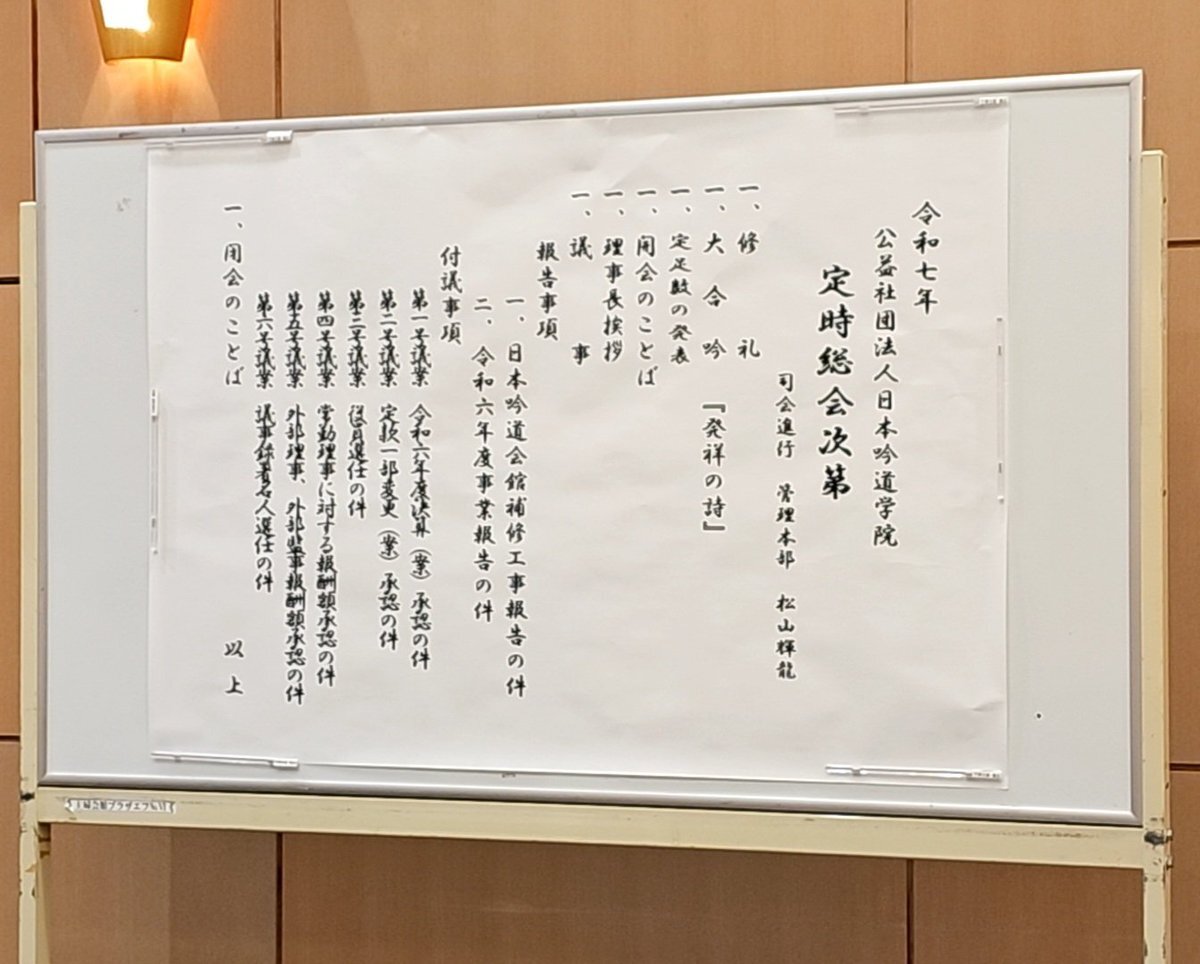 令和七年
公益社団法人日本吟道学院
定時総会次第
司会進行 管理本部 松山輝龍
一、修礼
一、大合吟 『発祥の詩』
一、定足数の発表
一、開会のことば
一、理事長挨拶
一、議事
報告事項
一、日本吟道会館補修工事報告の件
二、令和六年度事業報告の件
付議事項
第一号議案 令和六年度決算（案）承認の件
第二号議案 定款一部変更（案）承認の件
第三号議案 役員選任の件
第四号議案 常勤理事に対する報酬額承認の件
第五号議案 外部理事、外部監事報酬額承認の件
第六号議案 議事録署名人選任の件
一、閉会のことば
以上
主婦会館プラザエフ